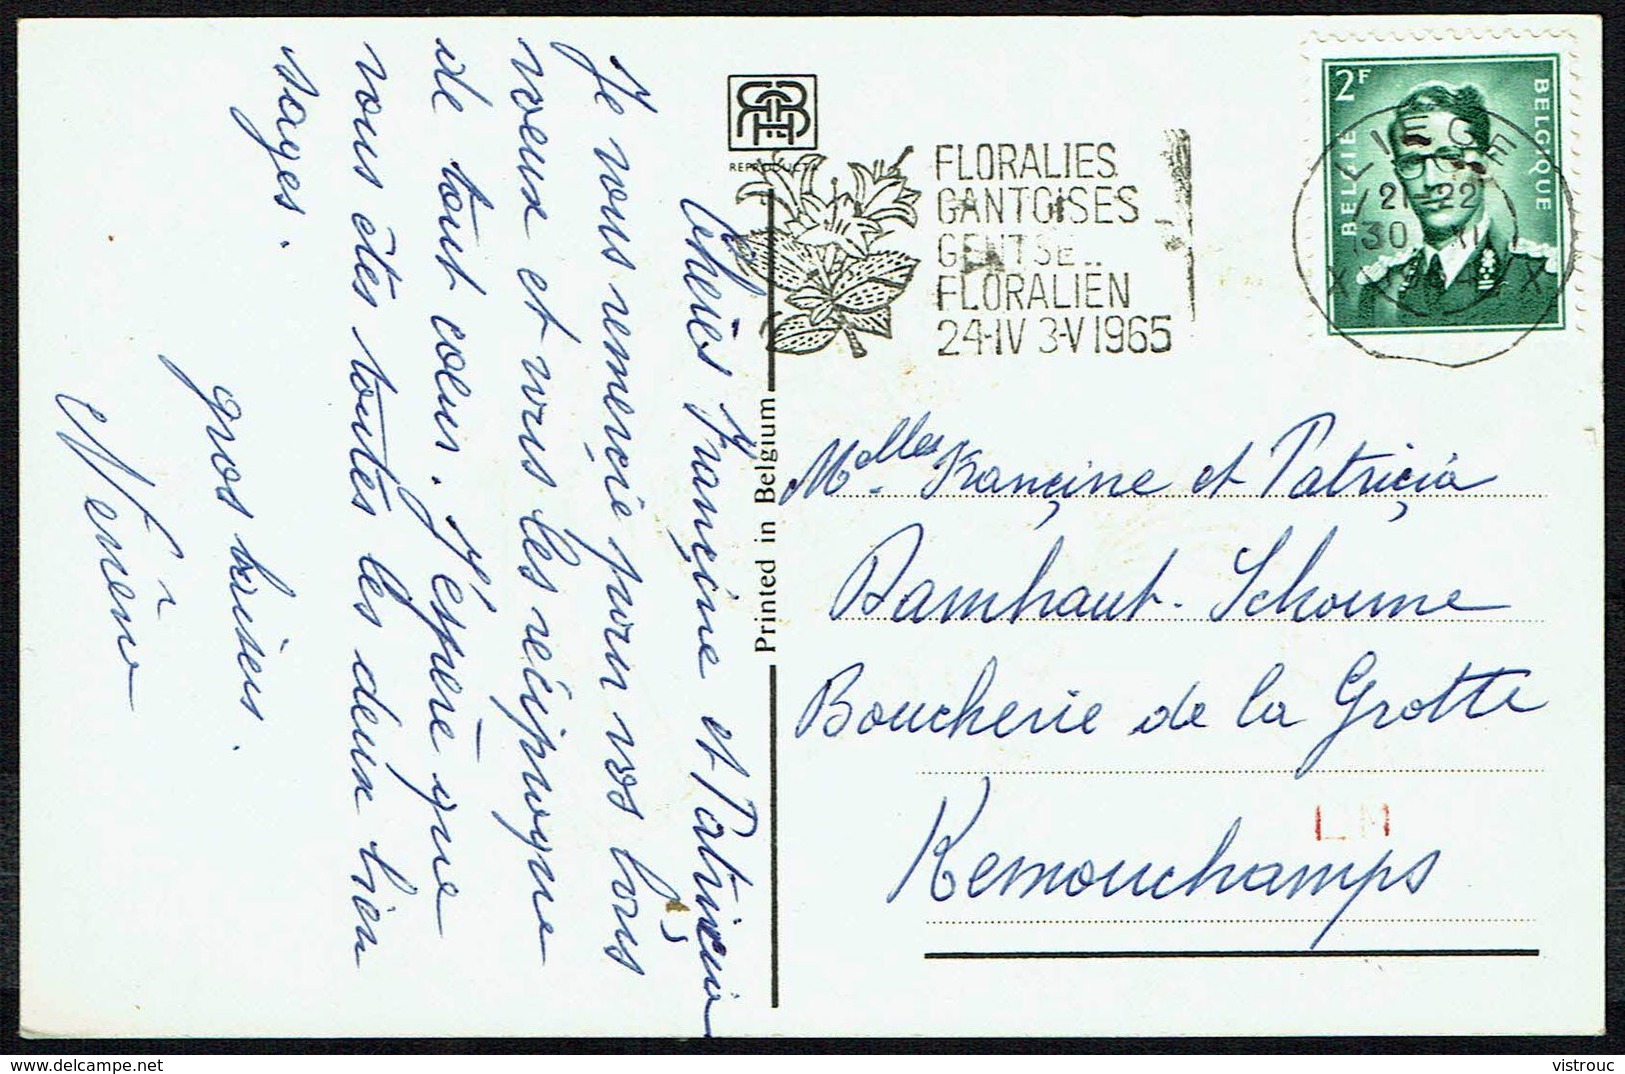 Chères Françine et Patriçia
Je vous remerçie pour vos bons
voeux et vous les réçiproque
de tout coeur. J'espère que
vous êtes toutes les deux bien
sages.
gros baisers.
REPRODUCTA
Printed in Belgium
FLORALIES
GANTOISES
GENTSE
FLORALIEN
24-IV 3-V 1965
2F
BELGIE BELGIQUE
LIEGE
21-22
30 XI
X X
Melles Françine et Patriçia
Damhaut-Schoune
Boucherie de la Grotte
LM
Remouchamps
delcampe.net
vistrouc